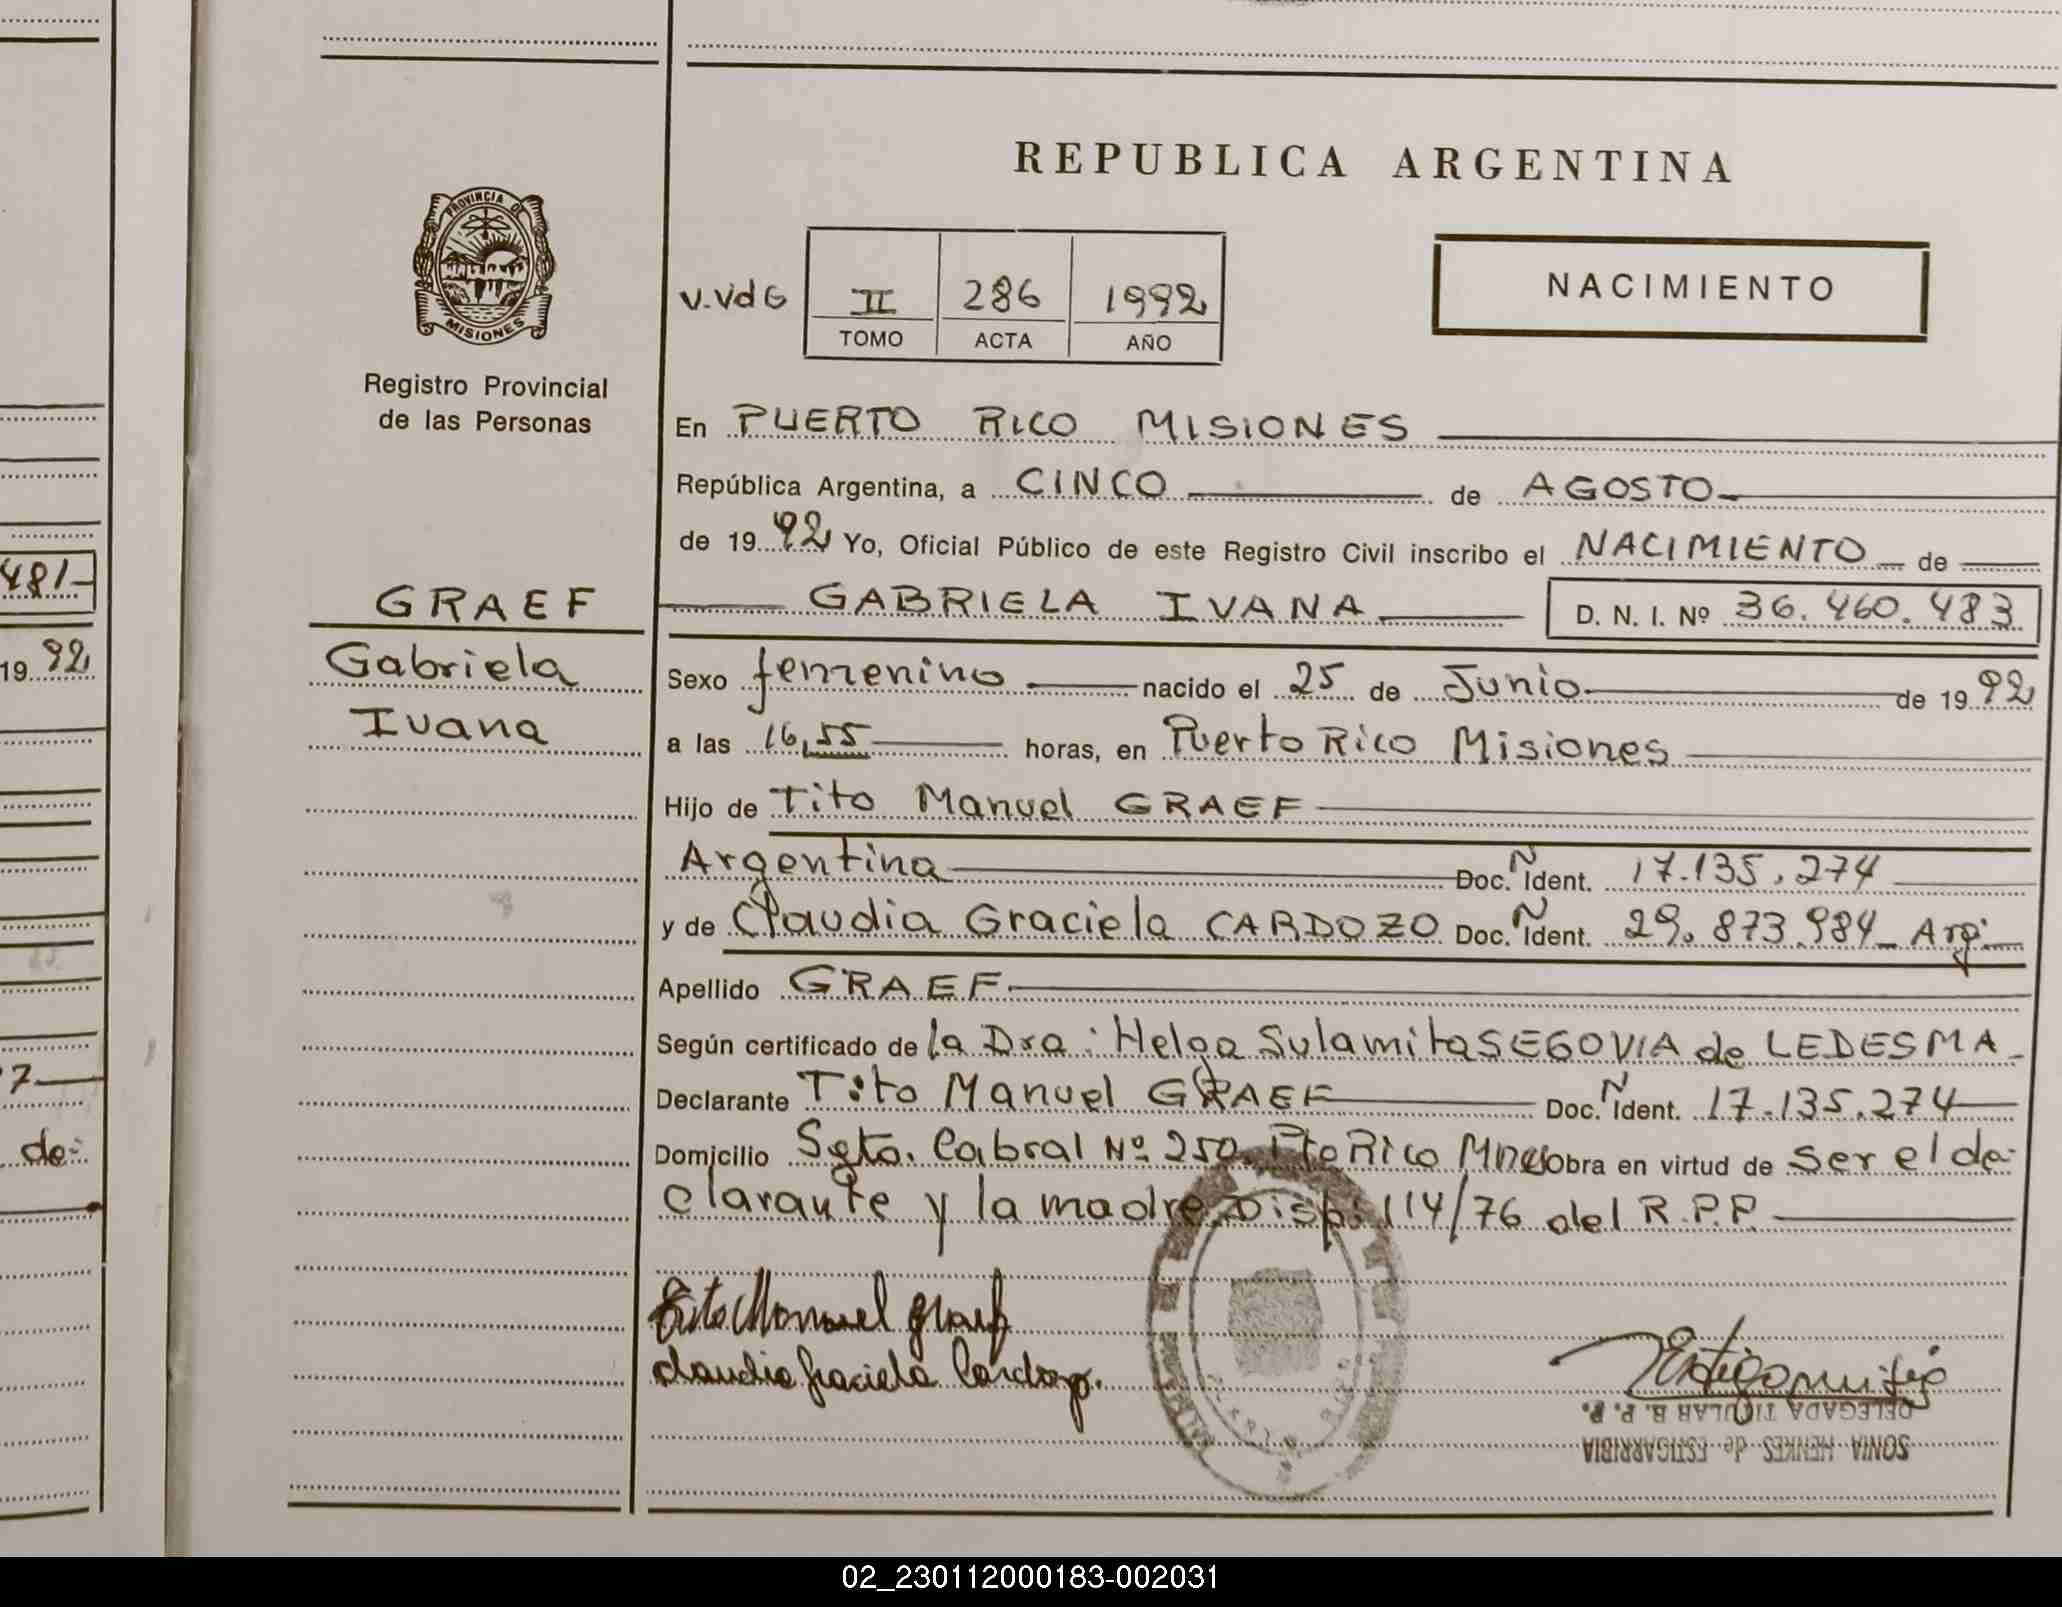 REPUBLICA ARGENTINA
PROVINCIA DE
MISIONES
Registro Provincial
de las Personas
V.VdG
II 286 1992
TOMO ACTA AÑO
NACIMIENTO
En PUERTO RICO MISIONES
República Argentina, a CINCO de AGOSTO
de 1992 Yo, Oficial Público de este Registro Civil inscribo el NACIMIENTO de
GABRIELA IVANA D. N. I. Nº 36.460.483
GRAEF
Gabriela
Ivana
Sexo femenino nacido el 25 de Junio de 1992
a las 16,55 horas, en Puerto Rico Misiones
Hijo de Tito Manuel GRAEF
Argentina Doc. Ñ Ident. 17.135.274
y de Claudia Graciela CARDOZO Doc. Ñ Ident. 29.873.984 Arg.
Apellido GRAEF
Según certificado de la Dra: Helga Sulamita SEGOVIA de LEDESMA
Declarante Tito Manuel GRAEF Doc. Ñ Ident. 17.135.274
Domicilio Sgto. Cabral Nº 250 Pto Rico Mnes Obra en virtud de ser el de-
clarante y la madre. Disp. 114/76 del R.P.P.
Tito Manuel Graef
Claudia Graciela Cardozo.
DELEGADA TITULAR R. P. P.
SONIA HENKES de ESTIGARRIBIA
481
19 92
7
de-
02_230112000183-002031